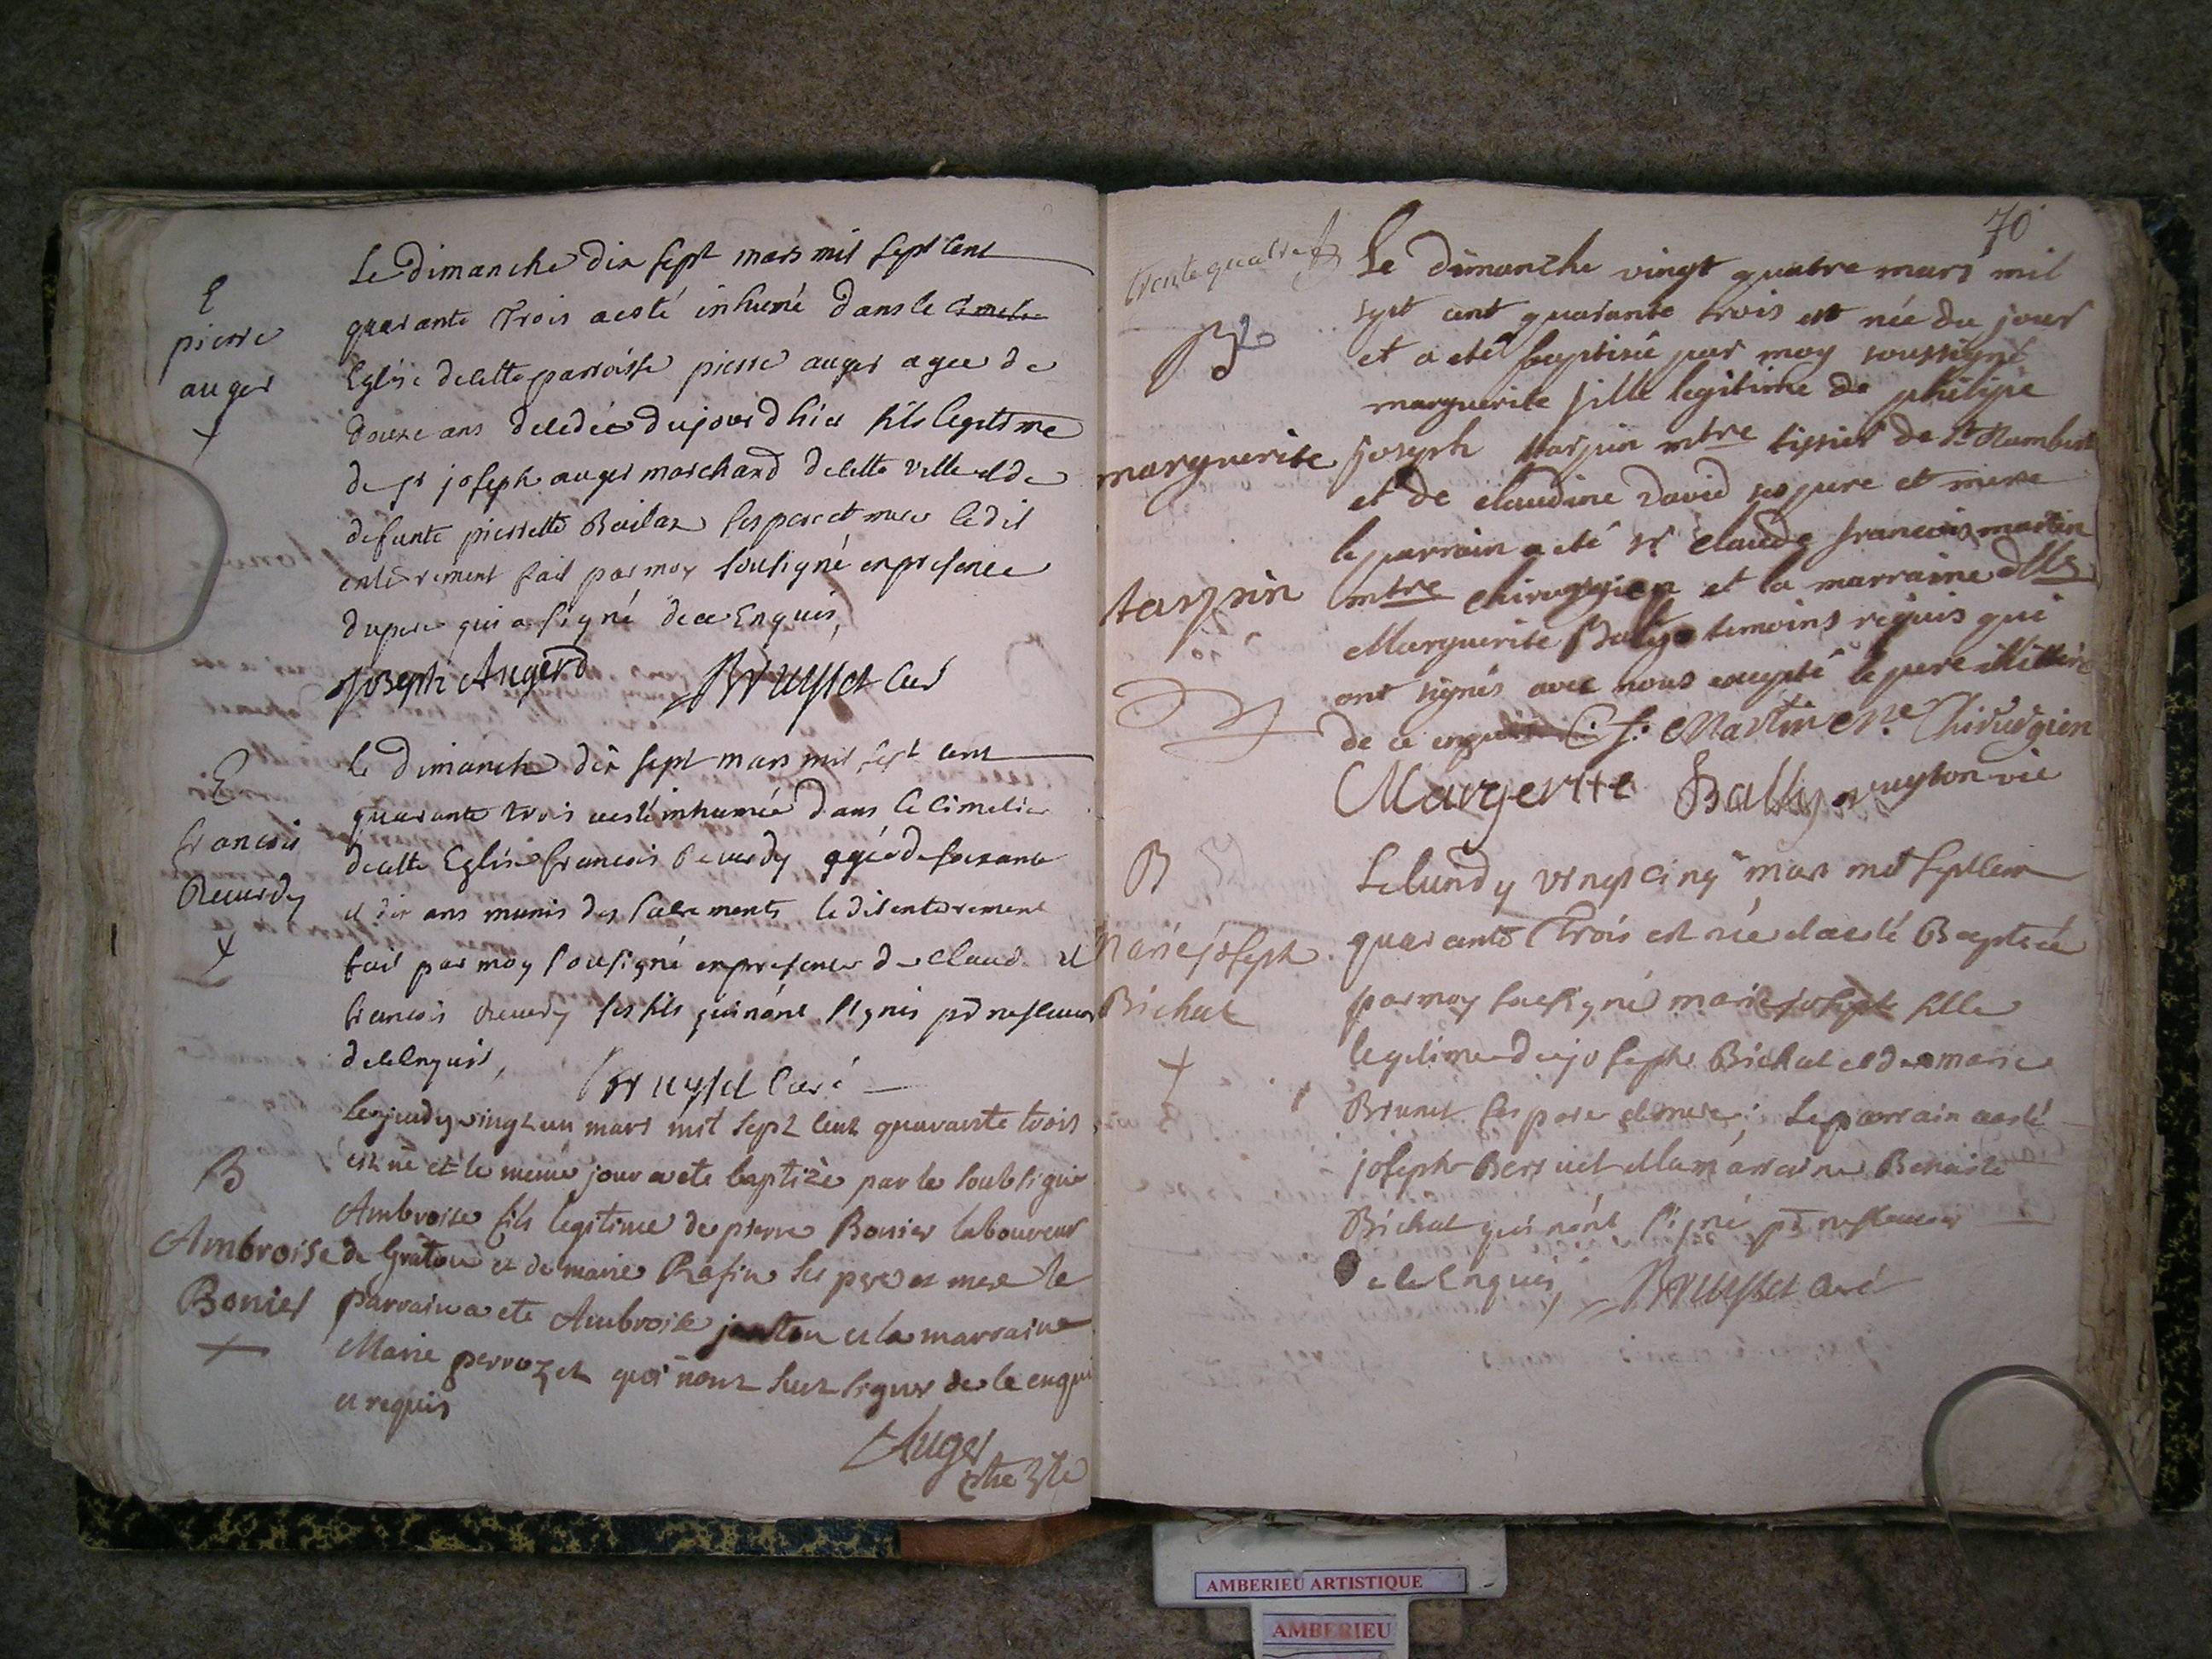 E
pierre
auger
Le dimanche dix sept mars mil sept cent
quarante trois a esté inhumé dans le
Eglise de cette parroisse pierre auger agee de
douze ans decedée du jour d hier fils legitime
de sr joseph auger marchand de cette ville et de
defunte pierrette ses pere et mere le dit
enterement fait par moy sousigné en presence
du pere qui a signé de ce Enquis,
Joseph Augerd Bruyset Curé
E
francois
Reverdy
Le dimanche dix sept mars mil sept cent
quarante trois a esté inhumée dans le cimetier
de cette Eglise francois Reverdy agée de soixante
et dix ans munis des sacrements le dit enterement
fait par moy sousigné en presence de Claude et
francois Reverdy ses fils qui nont signés pr ne scavoir
de ce Enquis, Bruyset Curé
B
Ambroise
Bonier
Le jeudy vingt un mars mil sept cent quarante trois
est né et le meme jour a ete baptizé par le soubsigné
Ambroise fils legitime de pierre Bonier laboureur
de et de marie Rafin ses pere et mere le
parrain a ete Ambroise et la marraine
Marie perrozet qui nont sceu signer de ce enquis
et requis
Auger
70
trente quatre
B
marguerite
tarpin
Le dimanche vingt quatre mars mil
sept cent quarante trois est née du jour
et a eté baptisée par moy soussigné
marguerite fille legitime de philippe
joseph tarpin mtre tissier de St Rambert
et de claudine David ses pere et mere
le parrain a eté sr claude francois martin
mtre chirurgien et la marraine dlle
Marguerite Bally temoins requis qui
ont signés avec nous excepté le pere illittéré
de ce enquis C. f. Martin Me Chirurgien
Margerite Bally
B
Marie joseph
Bichat
Le lundy vingt cinq mars mil sept cent
quarante Trois est née et a esté Baptisée
par moy sousigné marie joseph fille
legitime de joseph Bichat et de marie
Brunet ses pere et mere; Le parrain a esté
joseph Berruet et la marraine Benoite
Bichat qui nont signé pr ne scavoir
de ce Enquis, Bruyset Curé
AMBERIEU ARTISTIQUE
AMBERIEU